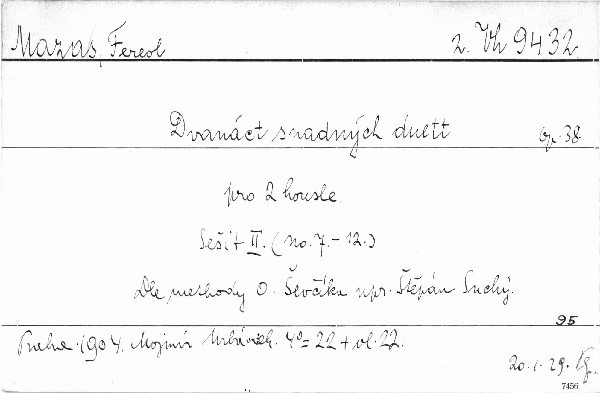 Mazas, Fereol 2. Vh 9432
Dvanáct snadných duett Op. 38
pro 2 housle.
Sešit II. (no. 7. - 12.)
Dle methody O. Ševčíka upr. Štěpán Suchý.
95
Praha. 1904. Mojmír Urbánek. 4° = 22 + vl. 22.
20. 1. 29.
7456